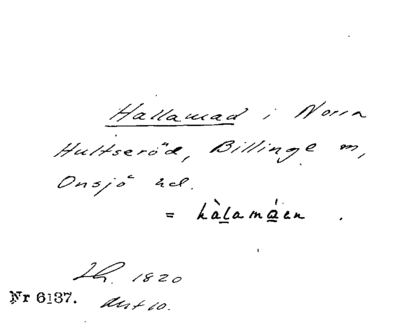 Hallamad i Norra
Hultseröd, Billinge m,
Onsjö hd.
= hàlamáen .
1820
Nr 6137.